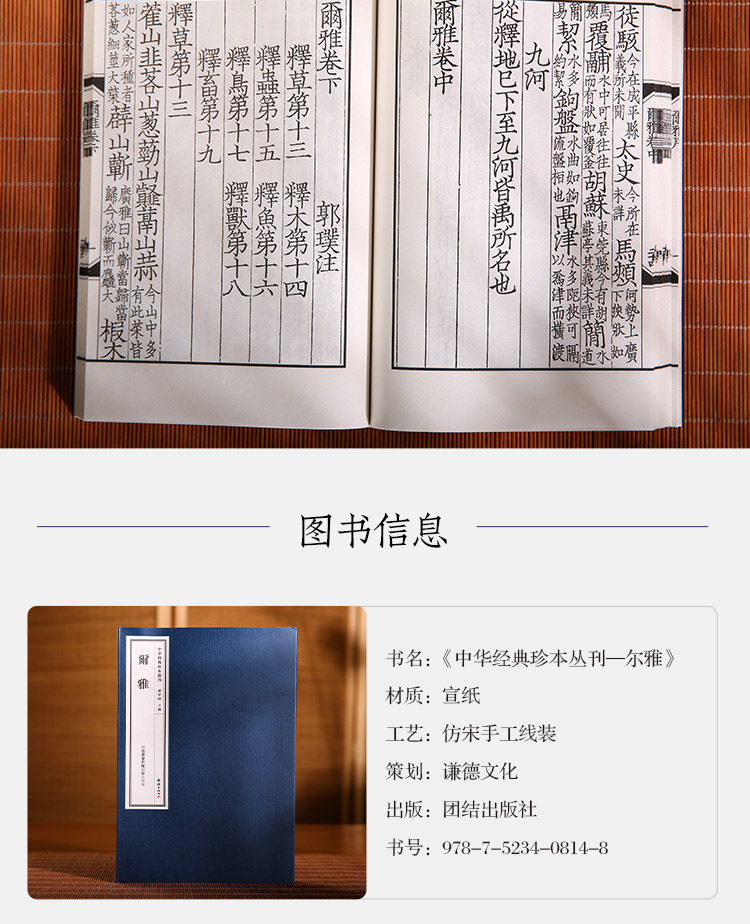 徒駭今在成平縣義所未聞太史今所在未詳馬頰河勢上廣下狹狀如
馬頰覆鬴水中可居往往而有狀如覆釜胡蘇東莞縣今有胡蘇亭其義未詳簡水道
簡易絜水多約絜鉤盤水曲如鉤流盤桓也鬲津水多阨狹可隔以爲津而橫渡
九河
從釋地已下至九河皆禹所名也
爾雅卷中
爾雅卷中
爾雅卷下 郭璞注
釋草第十三 釋木第十四
釋蟲第十五 釋魚第十六
釋鳥第十七 釋獸第十八
釋畜第十九
釋草第十三
蒮山韭茖山葱葝山䪥蒚山蒜今山中多有此菜皆
如人家所種者茖葱細莖大葉薜山蘄廣雅曰山蘄當歸當歸今似蘄而麤大椵木
爾雅卷下
图书信息
中華經典珍本叢刊
爾雅
书名：《中华经典珍本丛刊—尔雅》
材质：宣纸
工艺：仿宋手工线装
策划：谦德文化
出版：团结出版社
书号：978-7-5234-0814-8